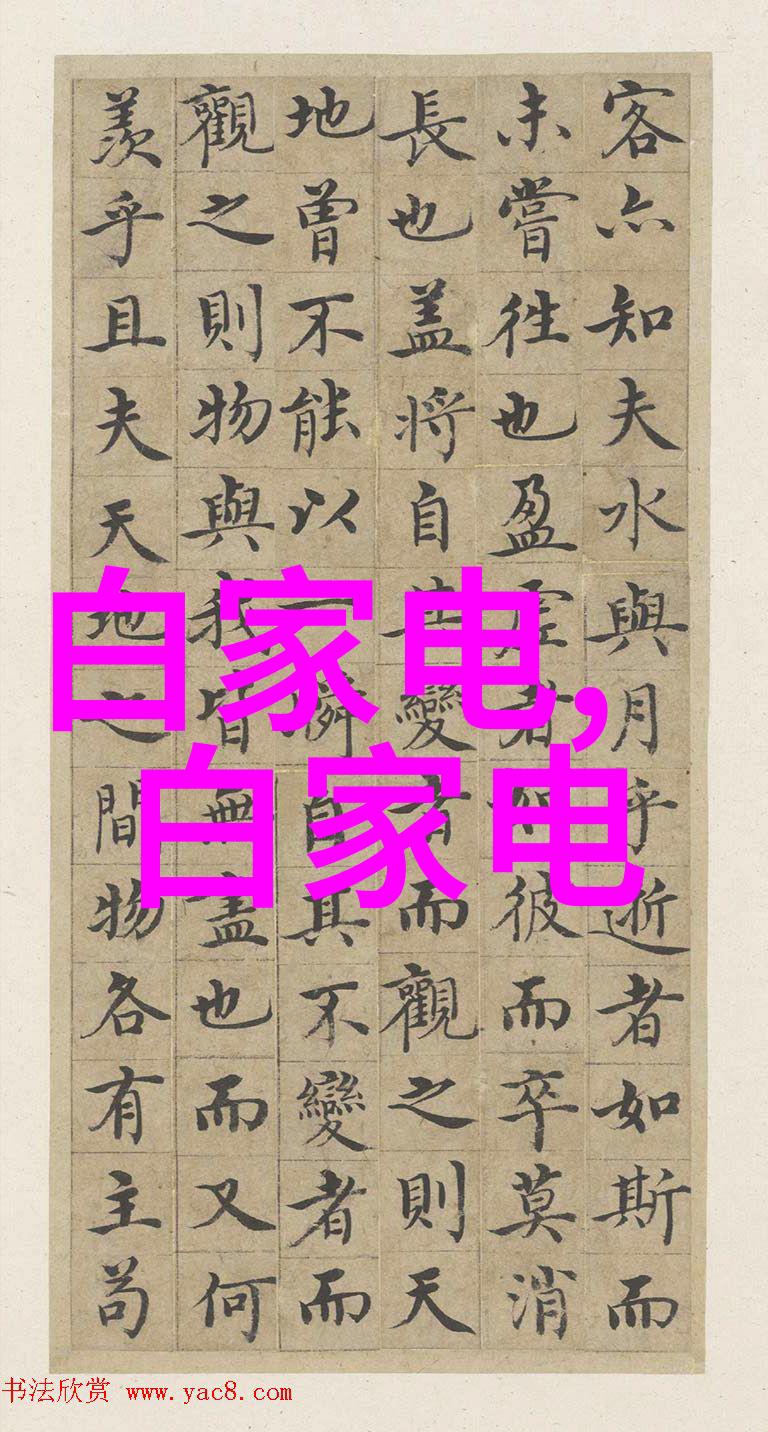 客亦知夫水與月乎逝者如斯而
未嘗徃也盈虛者如彼而卒莫消
長也盖將自其變者而觀之則天
地曾不能以一瞬自其不變者而
觀之則物與我皆無盡也而又何
羨乎且夫天地之間物各有主苟
白家电,
白家电
书法欣赏 www.yac8.com